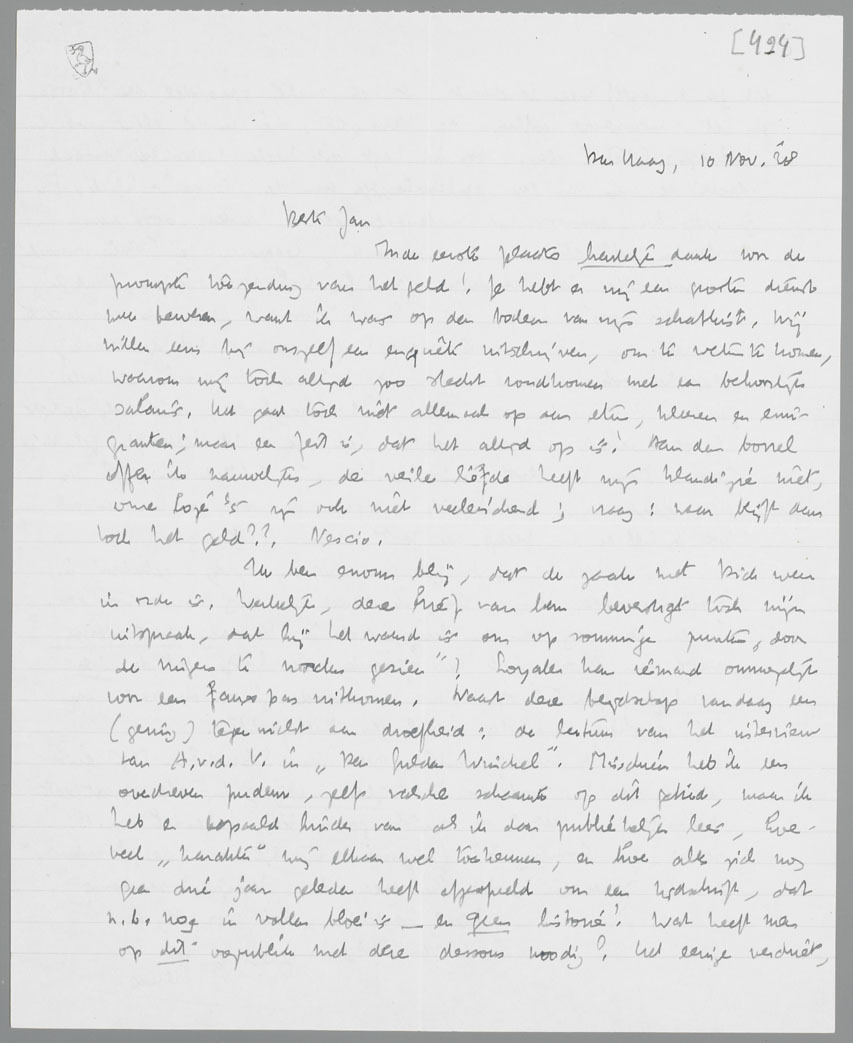 [494]
Den Haag, 10 Nov. '38
Beste Jan
In de eerste plaats hartelijk dank voor de
prompte toezending van het geld! Je hebt er mij een grooten dienst
mee bewezen, want ik was op den bodem van mijn schatkist. Wij
willen eens bij onszelf een enquête uitschrijven, om te weten te komen,
waarom wij toch altijd zoo slecht rondkomen met een behoorlijk
salaris. Het gaat toch niet allemaal op aan eten, kleeren en emi-
granten; maar een feit is, dat het altijd op is! Aan den borrel
offer ik nauwelijks, de veile liefde heeft mijn klandizie niet,
onze logé's zijn ook niet veeleischend; vraag: waar blijft dan
toch het geld??. Nescio.
Ik ben enorm blij, dat de zaak met Bick weer
in orde is. Werkelijk, deze brief van hem bevestigt toch mijn
uitspraak, dat hij het waard is om op sommige punten „door
de vingers te worden gezien"! Loyaler kan niemand onmogelijk
voor een faux pas uitkomen. Naast deze blijdschap vandaag een
(gering) tegenwicht aan droefheid: de lectuur van het interview
van A.v.d.V. in „Den Gulden Winckel". Misschien heb ik een
overdreven pudeur, zelfs valsche schaamte op dit gebied, maar ik
heb er bepaald hinder van als ik daar publiekelijk lees, hoe-
veel „karakter" wij elkaar wel toekennen, en hoe alles zich nog
geen drie jaar geleden heeft afgespeeld om een tijdschrift, dat
n.b. nog in vollen bloei is — en geen historie! Wat heeft men
op dit oogenblik met deze dessous noodig? Het eenige verdriet,